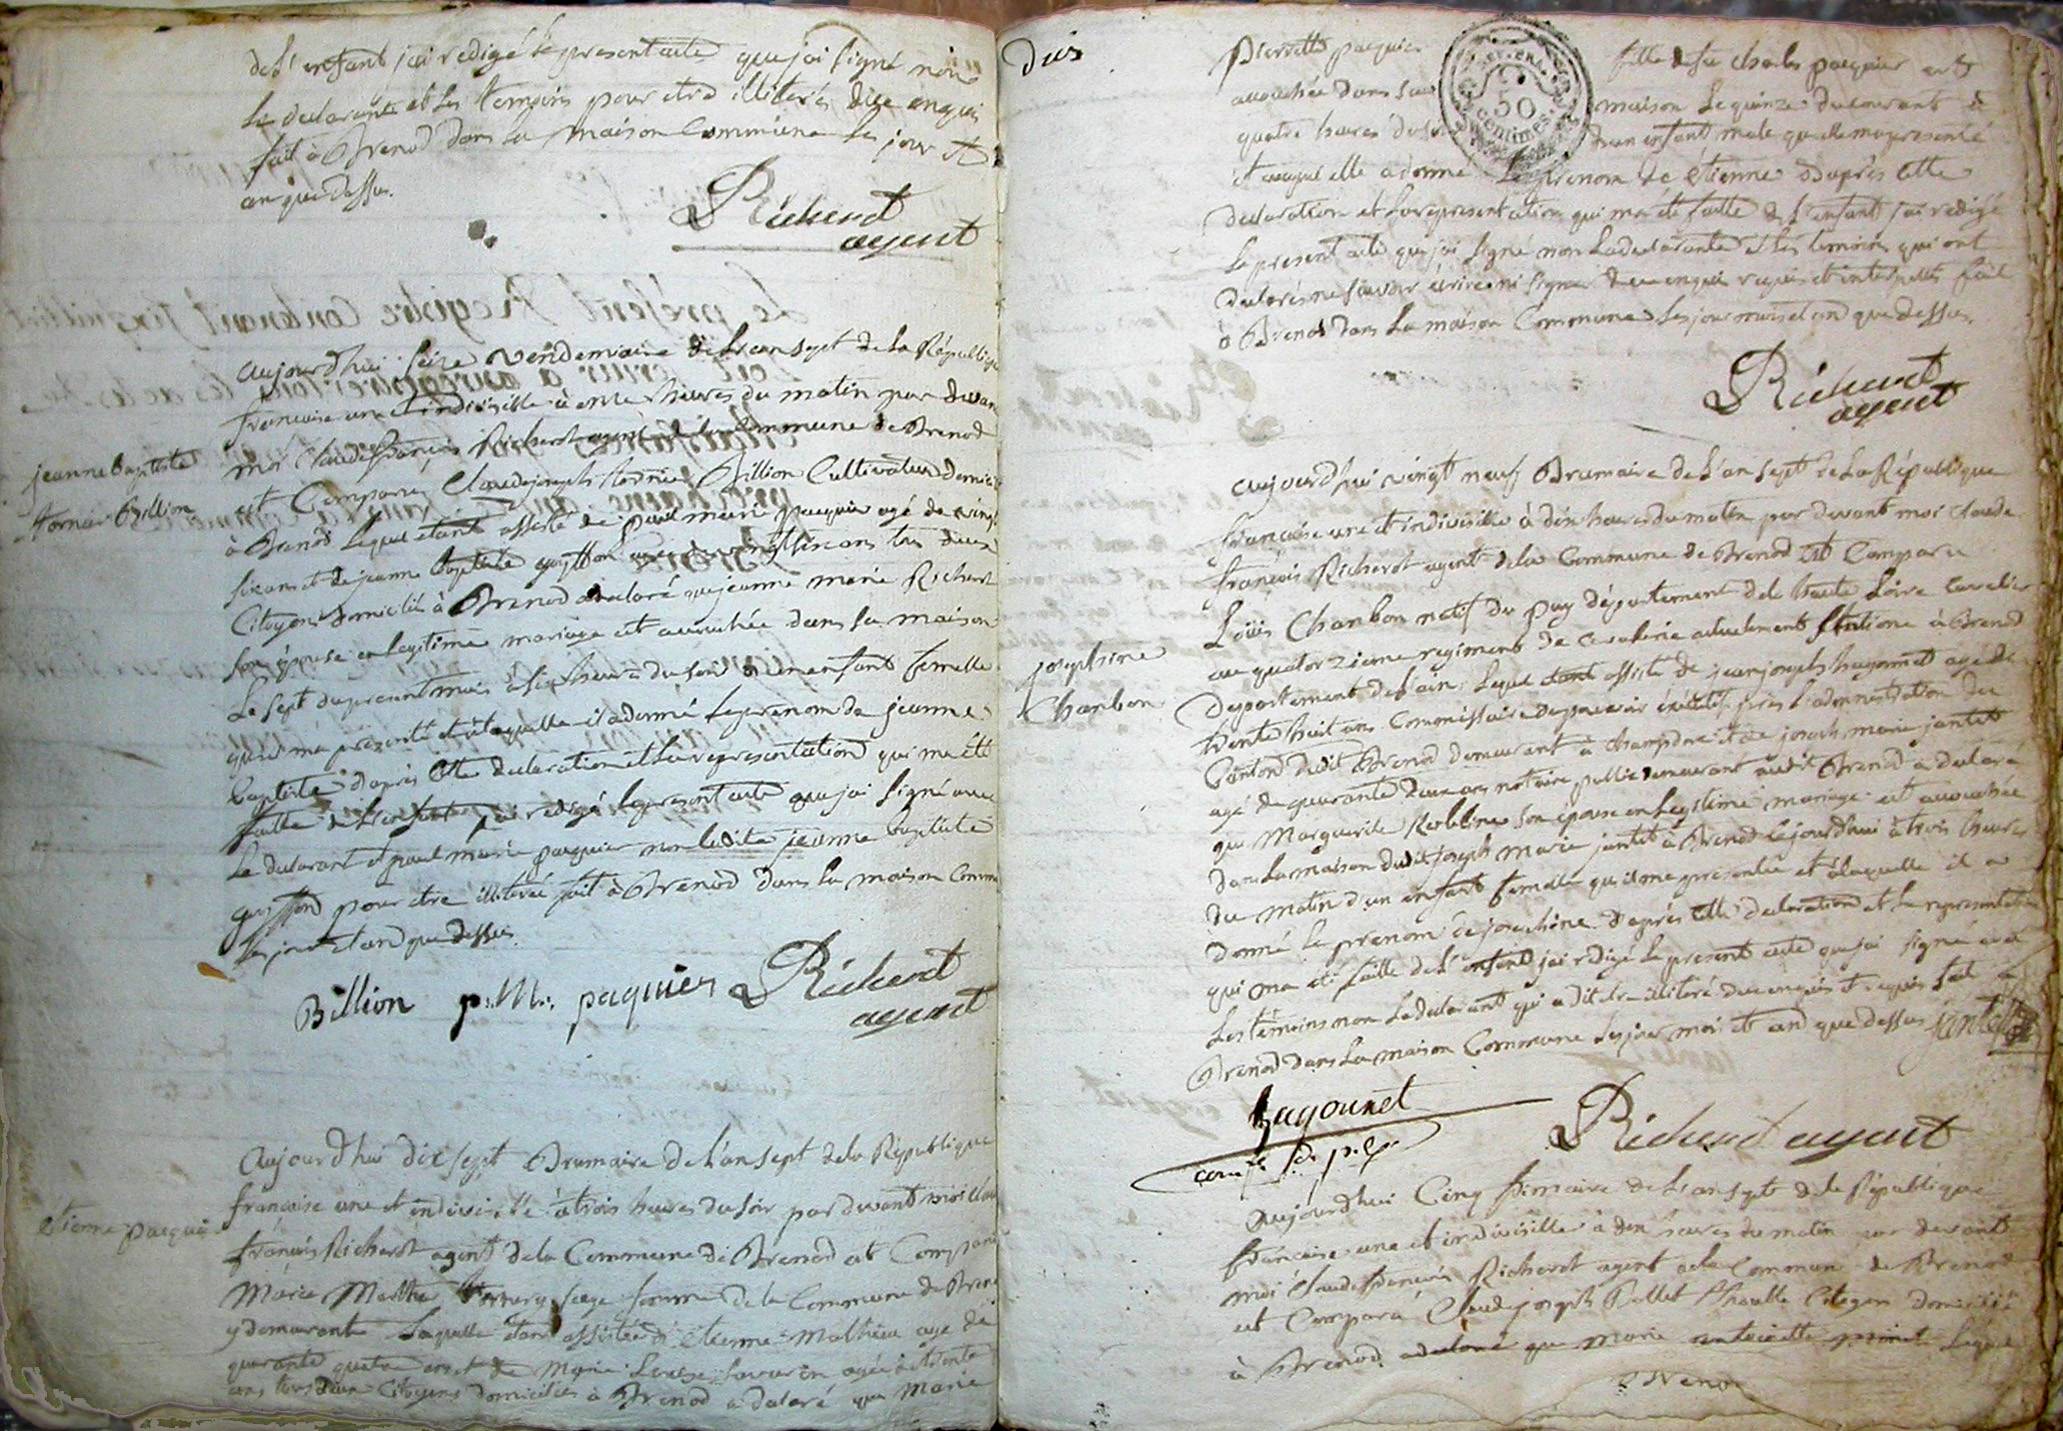 de l'enfant j'ai redigé le present acte que j'ai signé non
le declarante et les temoins pour etre illiterés duë enquis
fait à Brenod dans la maison Commune les jour et
an que dessus.
Richerot
agent
aujourd'hui seize vendemiaire de l'ean sept de la République
francaise une et indivisible à onze heures du matin par devant
moi Claude françois Richerot agent de la Commune de Brenod
jeanne baptiste
tornier Billion
est Comparu Claude joseph tornier Billion Cultivateur domicilié
à Brenod lequel étant assisté de paul marie pacquier agé de vingt
six ans et de jeanne baptiste guyffon agée de vingt six ans tous deux
Citoyens domiciliés à Brenod a declaré que jeanne marie Richerot
son épouse en legitime mariage est accouchée dans sa maison
le sept du present mois à six heures du soir d'un enfant femelle
qu'il ma presenté et à laquelle il a donné le prenom de jeanne
baptiste d'après cette declaration et la representation qui ma été
faitte de l'enfant j'ai redigé le present acte que j'ai signé avec
le declarant et paul marie pacquier non ladite jeanne baptiste
guyffon pour etre illiterée fait à Brenod dans la maison Commune
les jour et and que dessus.
Billion p: M: paquier Richerot
agent
Aujourd'hui dix sept Brumaire de l'an sept de la République
francaise une et indivisible à trois heures du soir par devant moi Claude
etienne pacquier
françois Richerot agent de la Commune de Brenod est Comparu
Marie Marthe sage femme de la Commune de Brenod
y demeurante laquelle etant assistée d'etienne Mathieu agé de
quarante quatre ans et de Marie Louise Savarin agée de trente
ans tous deux Citoyens domiciliés à Brenod a declaré que Marie
Dus
Pierrette pacquier fille de feu Charles pacquier est
accouchée dans sa maison le quinze du courant à
quatre heures du soir d'un enfant male quelle ma presenté
et auquel elle a donné le prenom de etienne d'après cette
declaration et la representation qui ma été faitte de l'enfant j'ai redigé
le present acte que j'ai signé non la declarante et les temoins qui ont
declarés ne savoir écrire ni signer de ce enquis requis et interpellés fait
à Brenod dans la maison Commune les jour mois et and que dessus.
50
centimes
Richerot
agent
aujourd'hui vingt neuf Brumaire de l'an sept de la République
francaise une et indivisible à dix heures du matin par devant moi Claude
françois Richerot agent de la Commune de Brenod est Comparu
Loüis Chanbon natif du Puy département de la haute Loire Cavalier
josephine
Chanbon
au quatorzieme regiment de Cavalerie actuelement stationé à Brenod
departement de l'ain, lequel etant assisté de jean joseph hugonnet agé de
trente huit ans Commissaire du pouvoir éxécutif près l'administration du
Canton dudit Brenod demeurant à Champdor et de joseph marie jantet
agé de quarante deux ans notaire public demeurant audit Brenod a declaré
que Marguerite son épouse en legitime mariage est accouchée
dans la maison dudit joseph marie jantet à Brenod le jourd'hui à trois heures
du matin d'un enfant femelle qu'il ma presentée et à laquelle il a
donné le prenom de josephine d'après cette declaration et la representation
qui ma été faitte de l'enfant j'ai redigé le present acte que j'ai signé avec
les temoins non le declarant qui a dit etre illiteré de ce enquis et requis fait à
Brenod dans la maison Commune les jour mois et and que dessus jantet
hugounet
Richerot agent
Aujourd'hui Cinq frimaire de l'an sept de la République
francaise une et indivisible à dix heures du matin par devant
moi Claude françois Richerot agent de la Commune de Brenod
est Comparu Claude joseph Ballet Citoyen domicilié
à Brenod a declaré que marie antoinette lequel